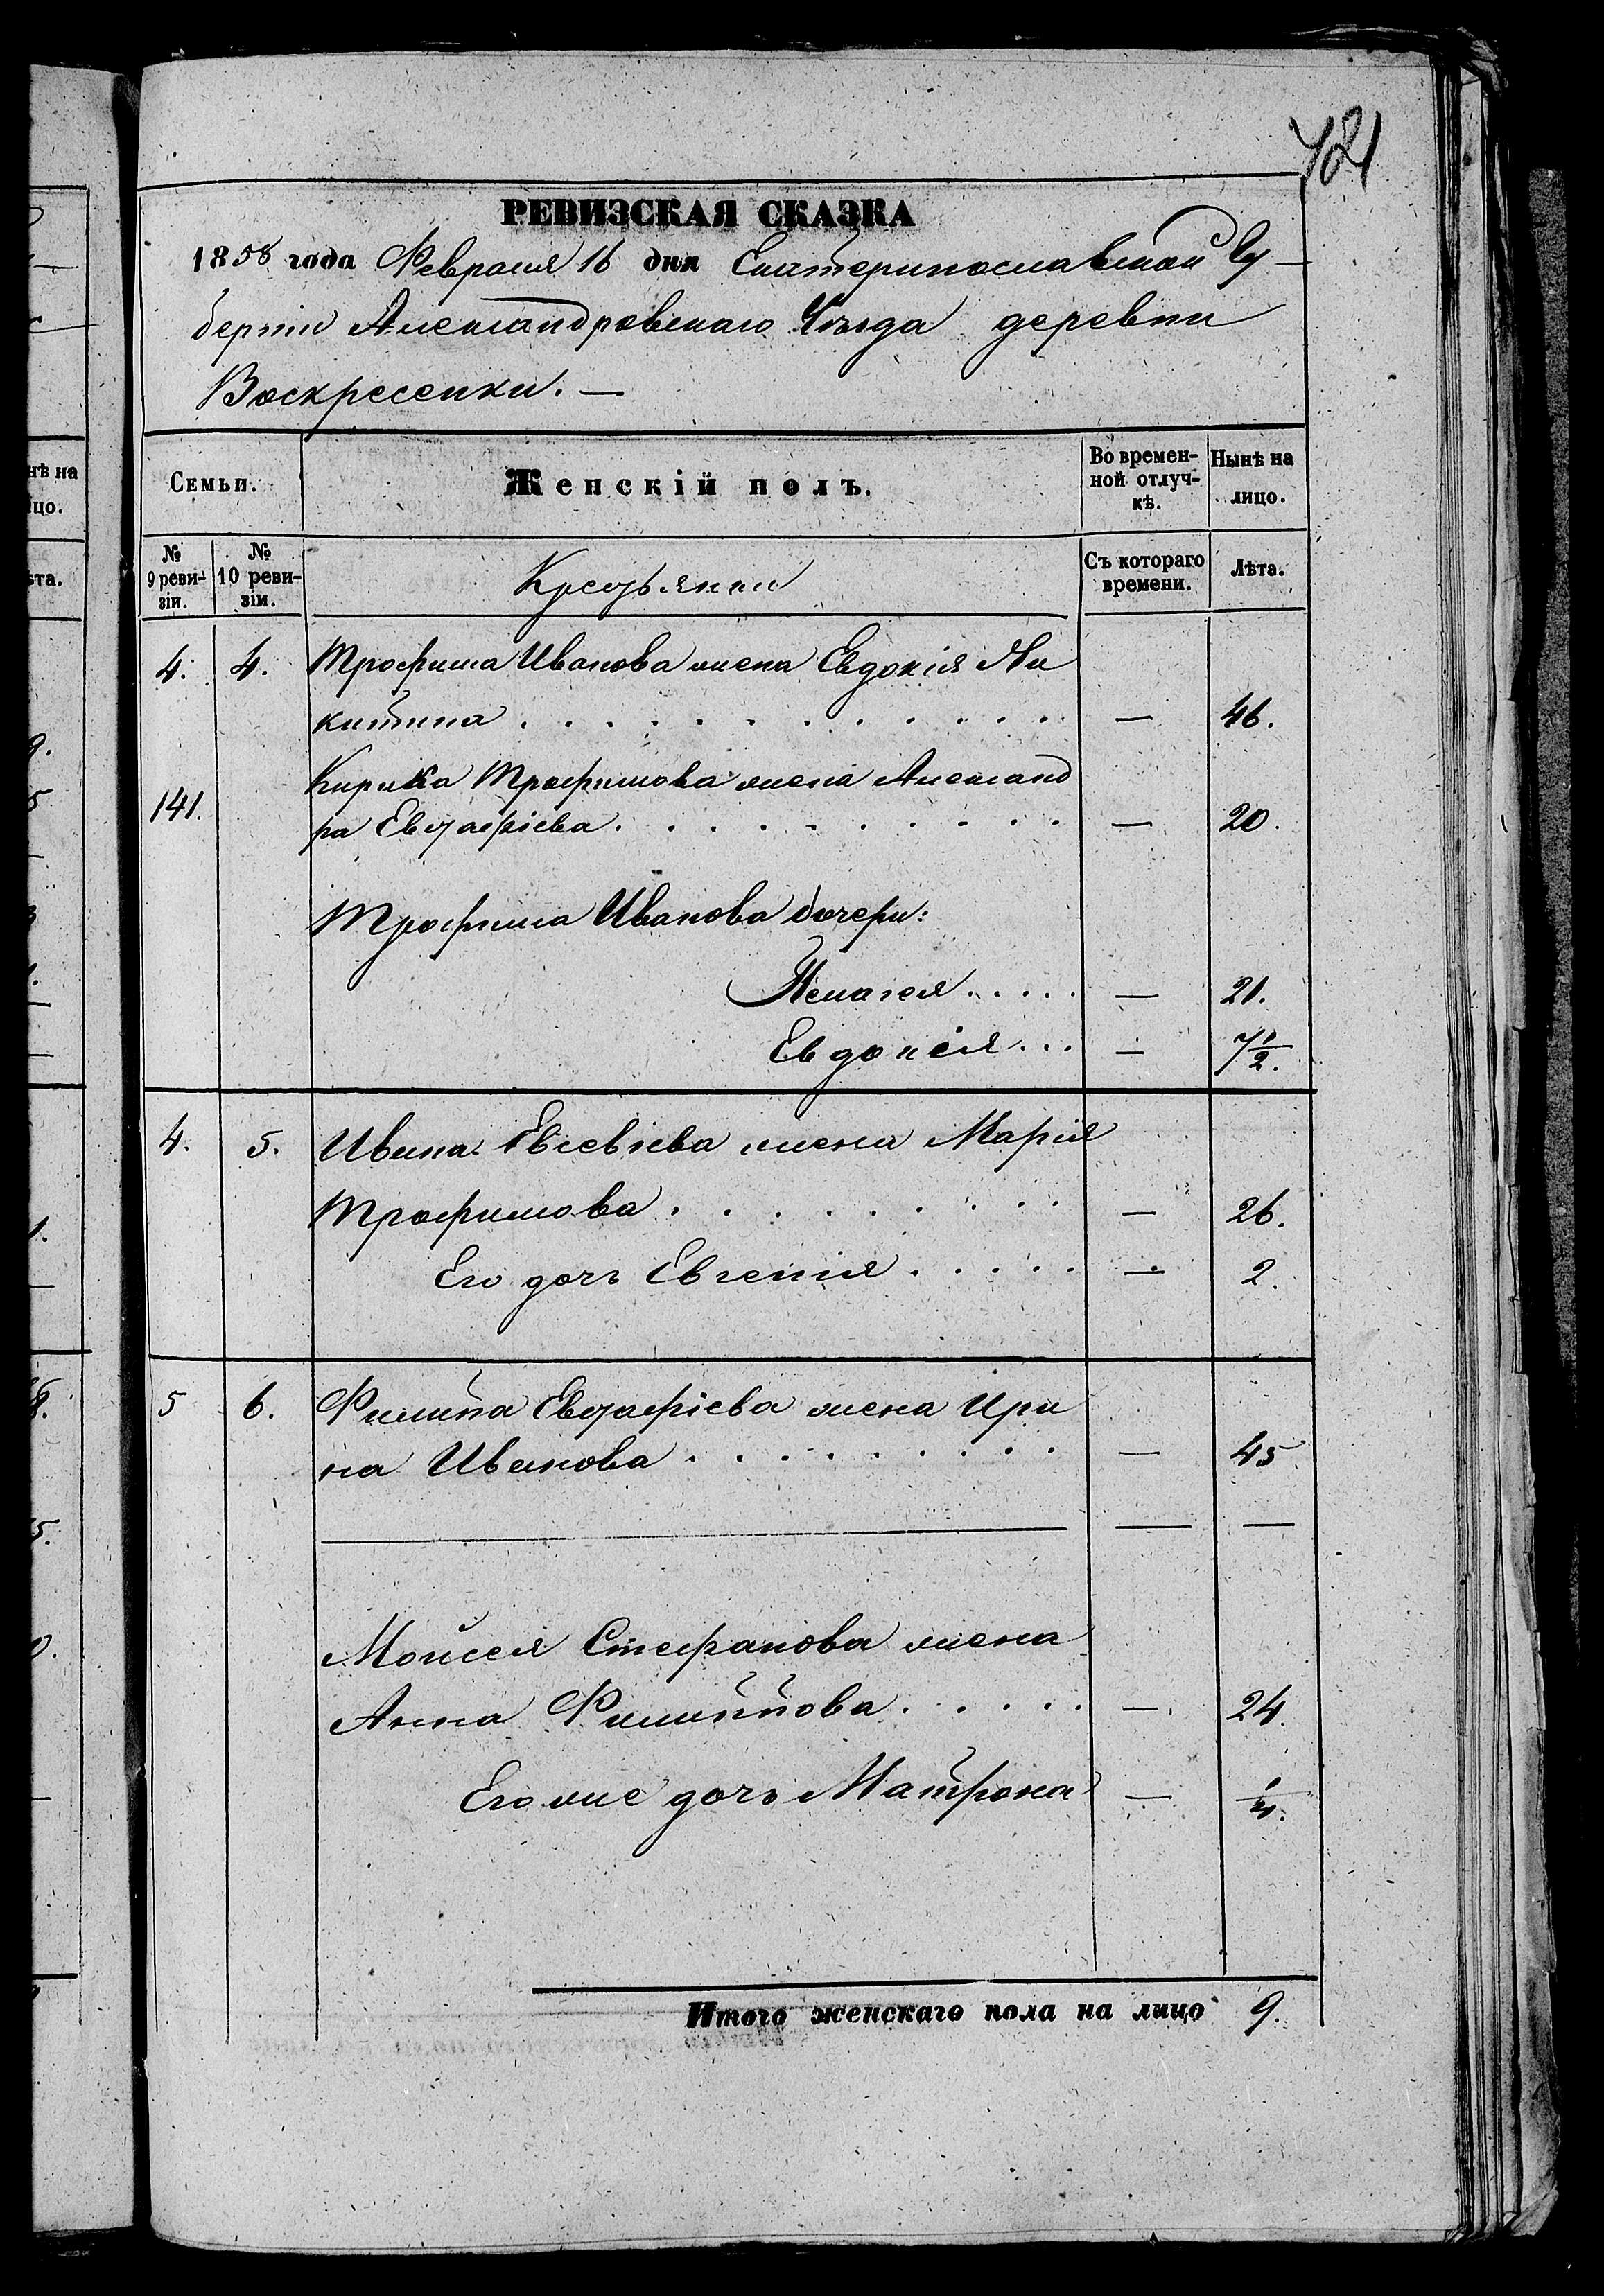 721
РЕВИЗСКАЯ СКАЗКА
1858 года Февраля 16 дня Екатеринославской Гу-
берніи Александровскаго Уѣзда деревни
Воскресенки. —
Семьи. Женскій полъ. Во времен-ной отлуч-кѣ. Нынѣ на лицо.
№ 9 реви-зіи. № 10 реви-зіи. Крестьянки Съ котораго времени. Лѣта.
4. 4. Трофима Иванова жена Евдокія Ни
китина . . . . . . . . . . . — 46.
Кирика Трофимова жена Александ
141. ра Евстафіева . . . . . . . . . — 20.
Трофима Иванова дочери:
Пелагея . . . . . — 21.
Евдокія . . . — 7 1/2.
4. 5. Ивана Евсевіева жена Марія
Трофимова . . . . . . . . — 26.
Его дочь Евгенія . . . . . — 2.
5 6. Филипа Евстафіева жена Ири
на Иванова . . . . . . . . — 45
— — —
Моисея Стефанова жена
Анна Филиппова . . . . . — 24.
Его же дочь Матрона —
Итого женскаго пола на лицо 9.
нѣ на
ицо.
ѣта.